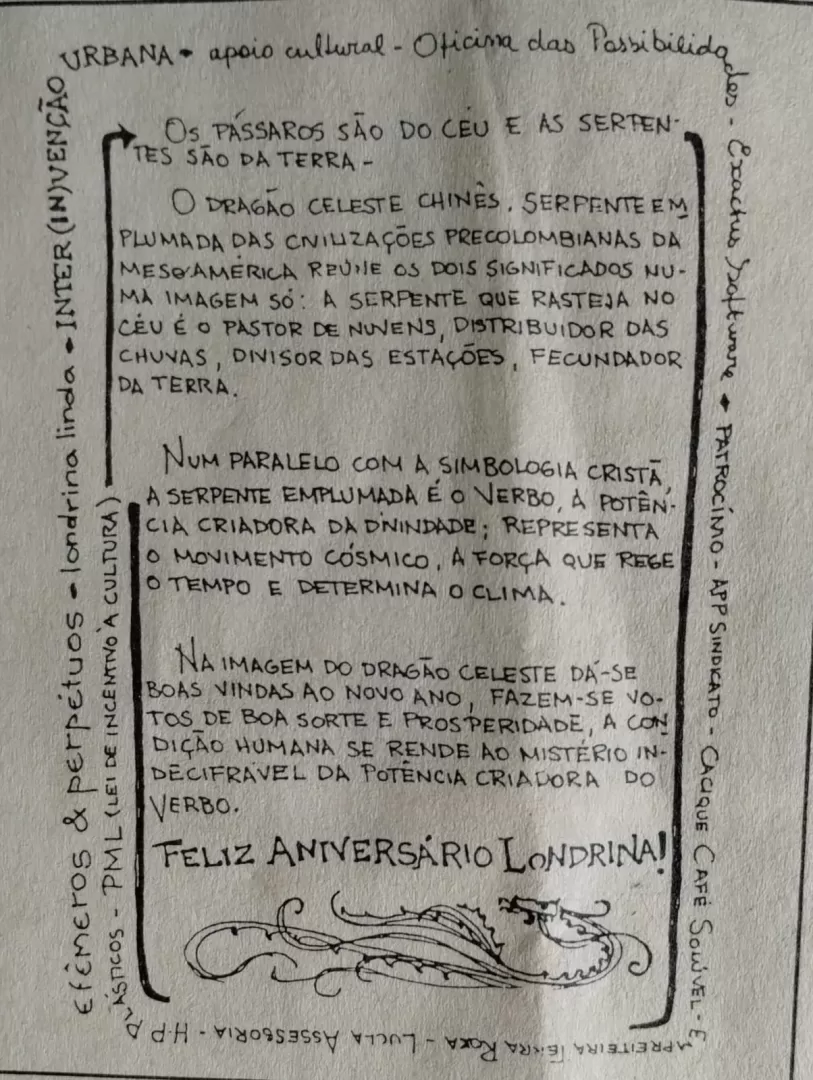 efêmeros & perpétuos - londrina linda - INTER(IN)VENÇÃO
URBANA - apoio cultural - Oficina das Possibilida
des - Exactus Software - PATROCÍNIO - APP SINDICATO - CACIQUE CAFÉ SOLÚVEL - E
MPREITEIRA TERRA ROXA - LUCLA ASSESSORIA - H.P. PL
ÁSTICOS - PML (LEI DE INCENTIVO À CULTURA)
OS PÁSSAROS SÃO DO CÉU E AS SERPEN-
TES SÃO DA TERRA -
O DRAGÃO CELESTE CHINÊS, SERPENTE EM
PLUMADA DAS CIVILIZAÇÕES PRECOLOMBIANAS DA
MESOAMÉRICA REÚNE OS DOIS SIGNIFICADOS NU-
MA IMAGEM SÓ: A SERPENTE QUE RASTEJA NO
CÉU É O PASTOR DE NUVENS, DISTRIBUIDOR DAS
CHUVAS, DIVISOR DAS ESTAÇÕES, FECUNDADOR
DA TERRA.
NUM PARALELO COM A SIMBOLOGIA CRISTÃ,
A SERPENTE EMPLUMADA É O VERBO, A POTÊN-
CIA CRIADORA DA DIVINDADE; REPRESENTA
O MOVIMENTO CÓSMICO, A FORÇA QUE REGE
O TEMPO E DETERMINA O CLIMA.
NA IMAGEM DO DRAGÃO CELESTE DÁ-SE
BOAS VINDAS AO NOVO ANO, FAZEM-SE VO-
TOS DE BOA SORTE E PROSPERIDADE, A CON
DIÇÃO HUMANA SE RENDE AO MISTÉRIO IN-
DECIFRÁVEL DA POTÊNCIA CRIADORA DO
VERBO.
FELIZ ANIVERSÁRIO LONDRINA!